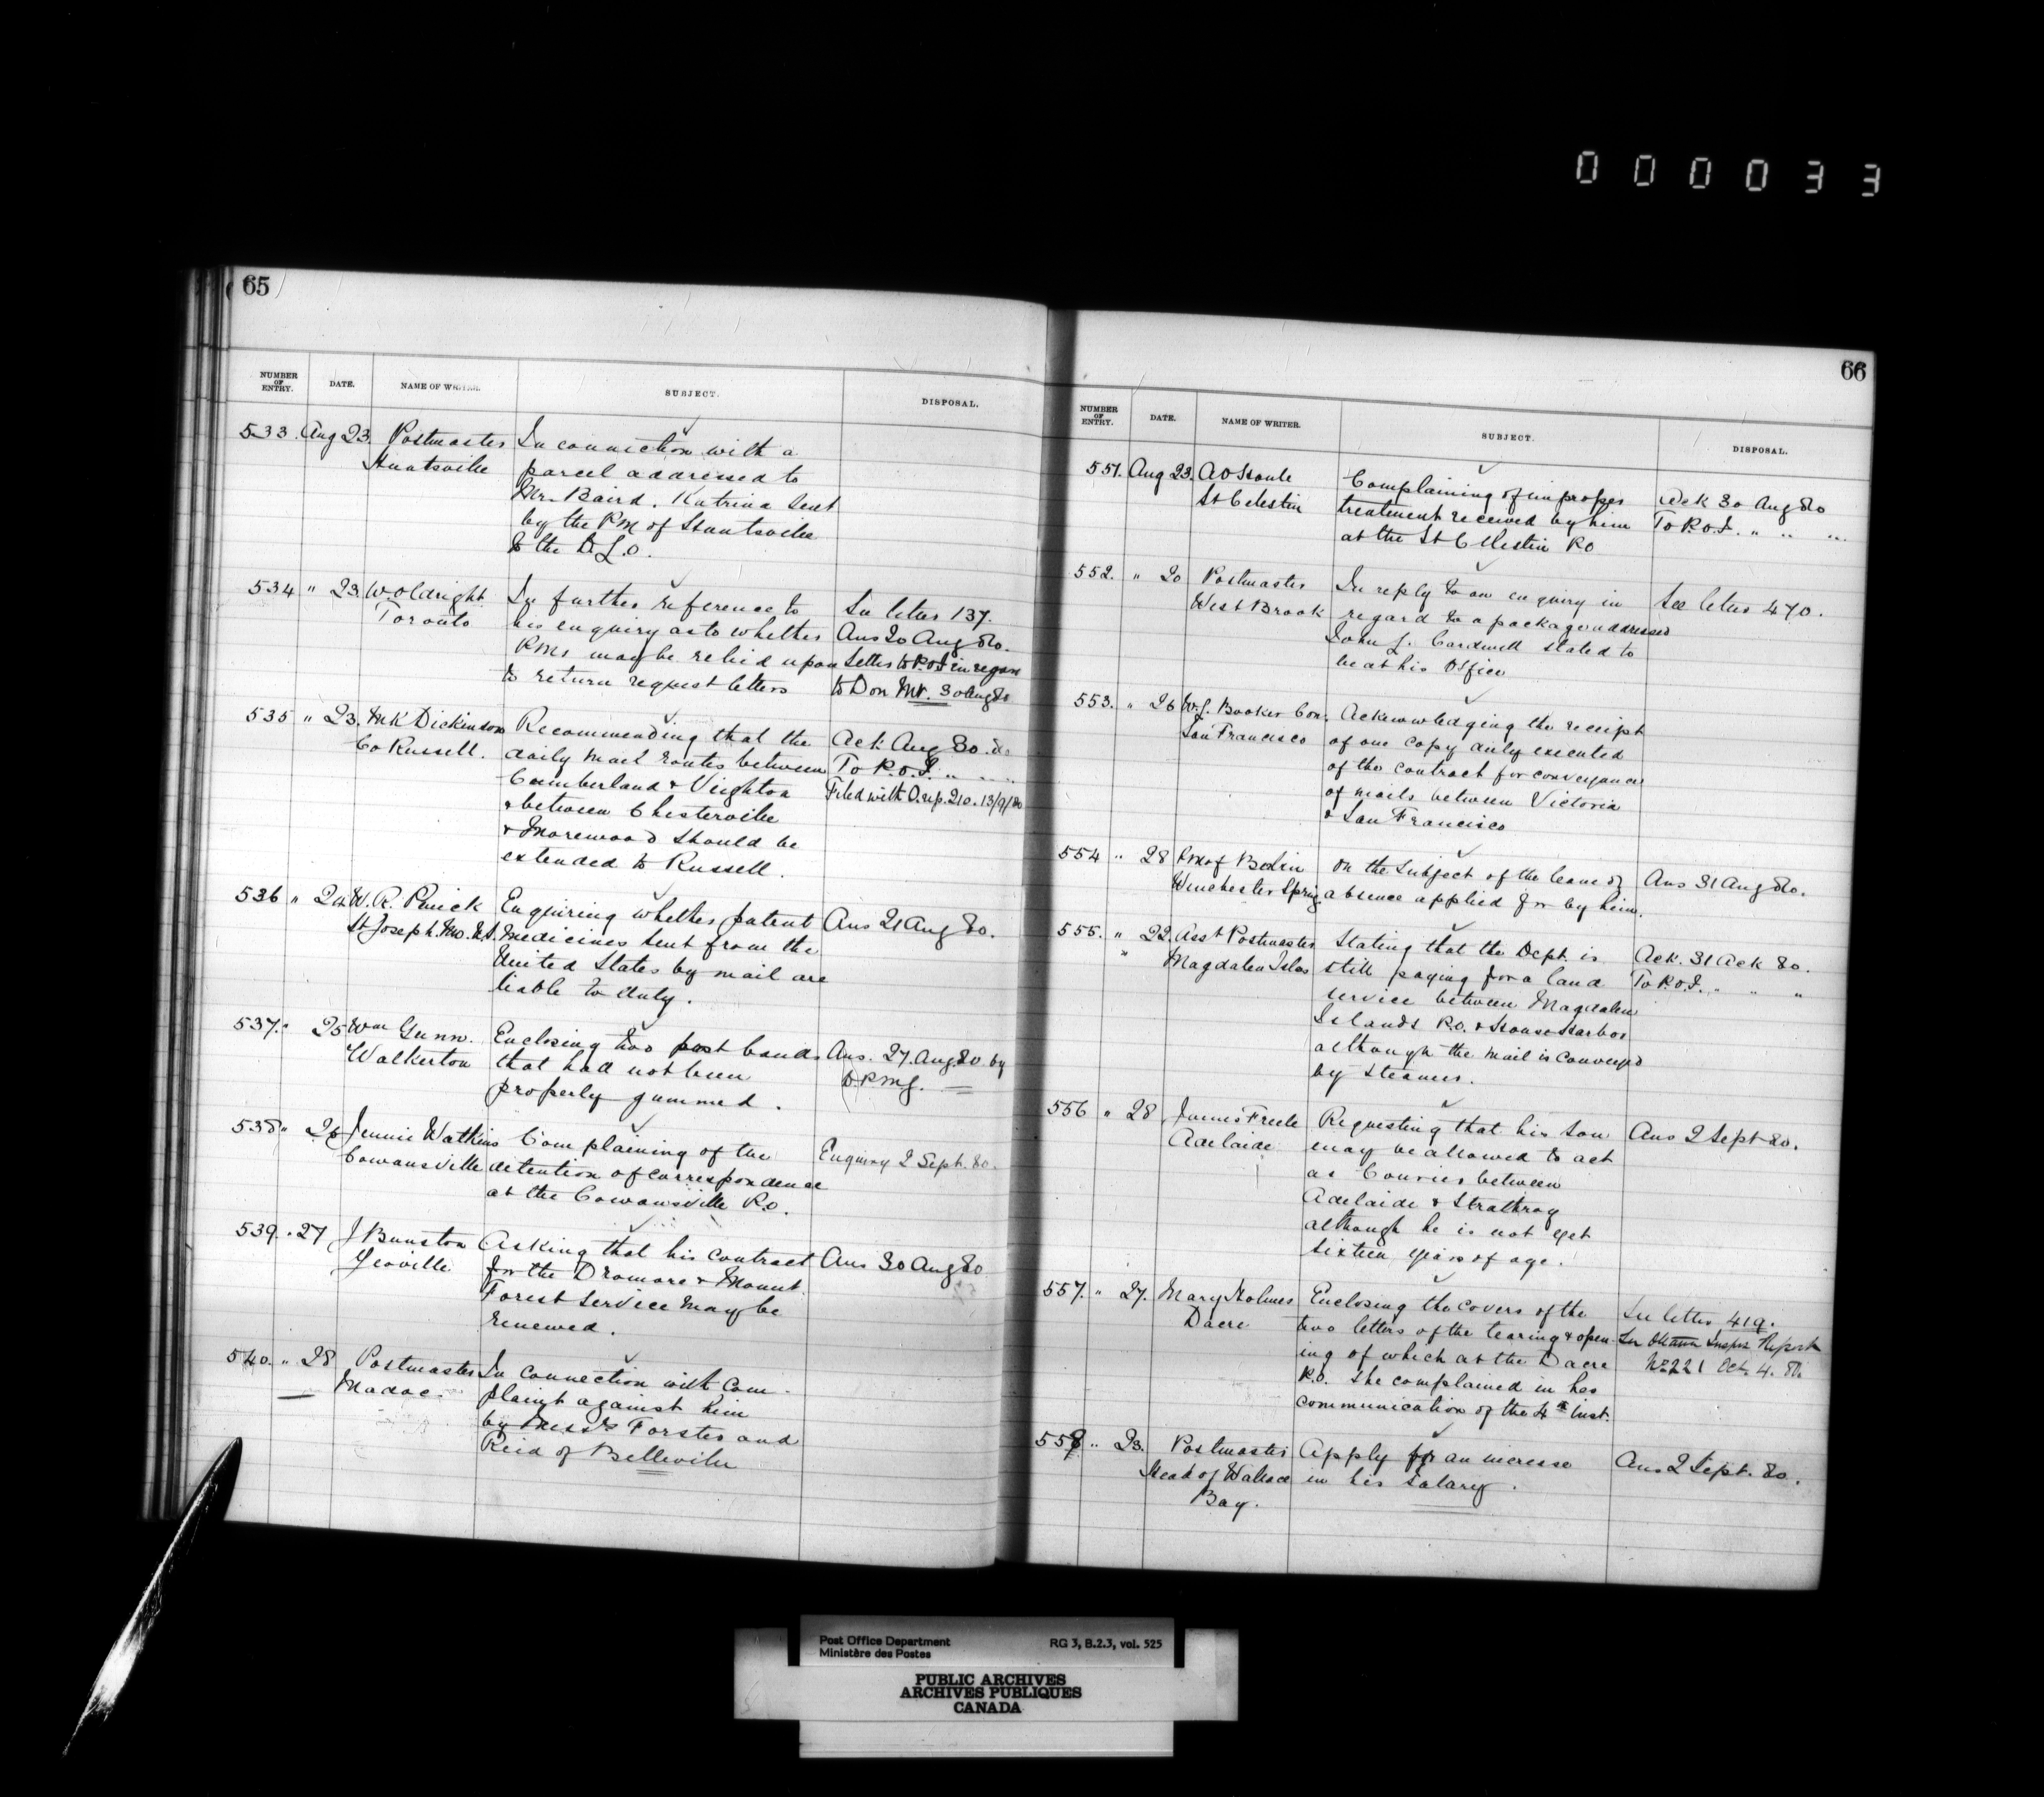 000033
65
NUMBER OF ENTRY. DATE. NAME OF WRITER. SUBJECT. DISPOSAL.
533. Aug 23. Postmaster In connection with a
Huntsville parcel addressed to
Mr. Baird. Katrina sent
by the PM of Huntsville
to the D.L.O.
534 " 23. W Oldright In further reference to See letter 137.
Toronto his enquiry as to whether Ans 20 Aug 80.
PMs may be relied upon Letter to P.O.I in regard
to return request letters to Don Mt. 30 Aug 80
535 " 23. M K Dickinson Recommending that the Ack. Aug 30. 80
Co Russell. daily mail routes between To P.O.I. " " "
Cumberland & Vighton Filed with O. rep. 210. 13/9/80
& between Chesterville
& Morewood should be
extended to Russell.
536 " 24 W. R. Penick Enquiring whether patent Ans 21 Aug 80.
St Joseph. Mo. U.S. Medicines sent from the
United States by mail are
liable to duty.
537. " 25 Wm Gunn. Enclosing two post bands Ans. 27. Aug 80. by
Walkerton that had not been D.P.M.G.
properly gummed.
538 " 26 Jennie Watkins Complaining of the Enquiry 2 Sept. 80.
Cowansville detention of correspondence
at the Cowansville P.O.
539. " 27 J Bunston Asking that his contract Ans 30 Aug 80
Yeoville. for the Dromore & Mount
Forest Service may be
renewed.
540. " 28 Postmaster In connection with Com-
Madoc. plaint against him
by Messrs Forster and
Reid of Belleville
66
NUMBER OF ENTRY. DATE. NAME OF WRITER. SUBJECT. DISPOSAL.
551. Aug 23. A O Houle Complaining of improper Ack 30 Aug 80
St Celestin treatment received by him To P.O.I. " " "
at the St Celestin PO
552. " 20 Postmaster In reply to an enquiry in See letter 470.
West Brook regard to a package addressed
John J. Cardwell stated to
be at his Office
553. " 26 W. J. Booker Con. Acknowledging the receipt
San Francisco of one copy duly executed
of the contract for conveyance
of mails between Victoria
& San Francisco
554 " 28 P M of On the subject of the leave of Ans 31 Aug 80.
Winchester Springs absence applied for by him.
555. " 22. Asst Postmaster Stating that the Dept. is Ack. 31 Ack 80.
" Magdalen Isles still paying for a land To P.O.I. " " "
service between Magdalen
Islands P.O. & House Harbor
although the mail is conveyed
by steamer.
556 " 28 James Freele Requesting that his son Ans 2 Sept 80.
Adelaide may be allowed to act
as Courier between
Adelaide & Strathroy
although he is not yet
sixteen years of age.
557. " 27. Mary Holmes Enclosing the covers of the See letter 419.
Dacre two letters of the tearing & open- See Ottawa Inspr Report
ing of which at the Dacre No 221 Oct. 4. 80.
P.O. she complained in her
communication of the 4th inst.
558 " 23. Postmaster Apply for an increase Ans 2 Sept. 80.
Head of Wallace in his salary.
Bay.
Post Office Department RG 3, B.2.3, vol. 525
Ministère des Postes
PUBLIC ARCHIVES
ARCHIVES PUBLIQUES
CANADA